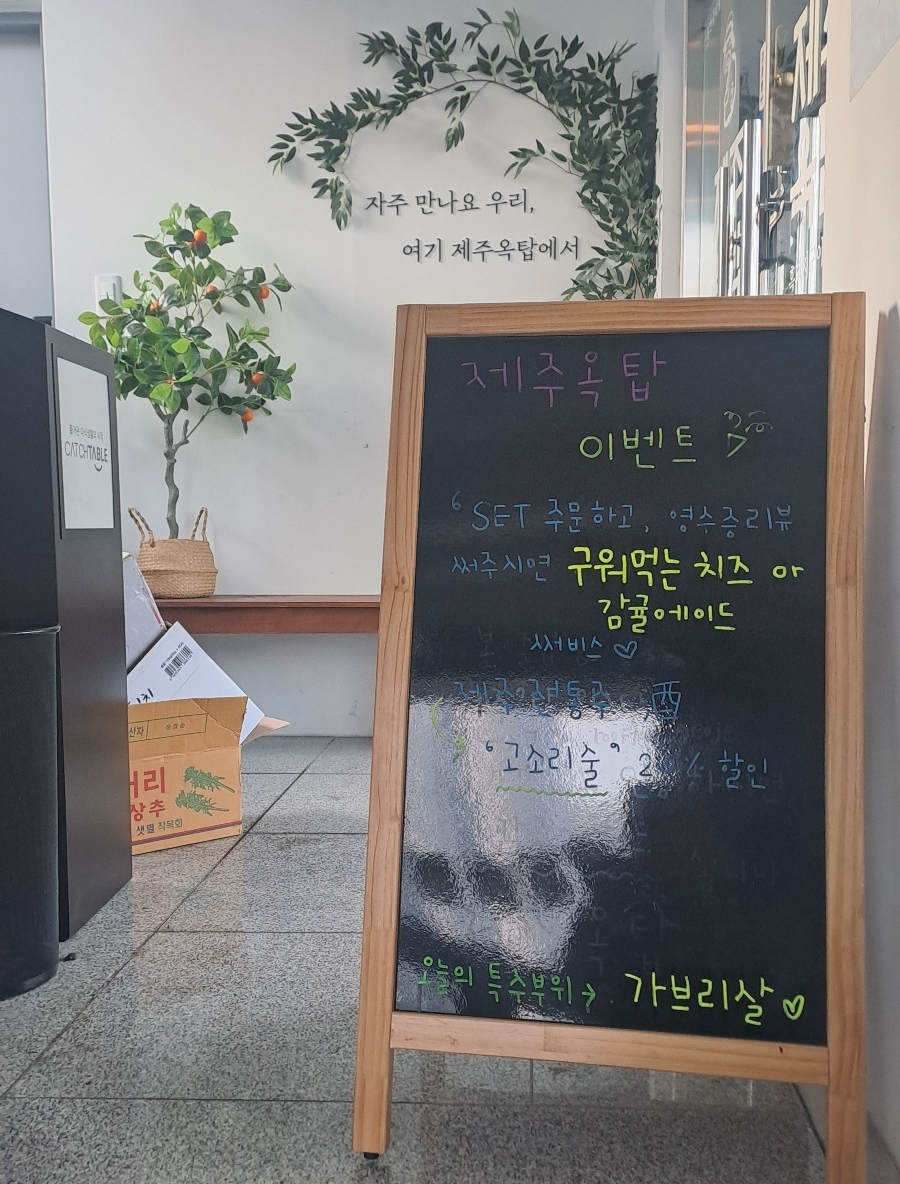 자주 만나요 우리,
여기 제주옥탑에서
즐거운 미식생활의 시작
CATCHTABLE
제주옥탑
이벤트
'SET 주문하고, 영수증리뷰
써주시면 구워먹는 치즈 or
감귤에이드
써비스♡
제주 전통주 酒
"고소리술" 할인
오늘의 특수부위→ 가브리살♡
산자
상추
샛별 작목회